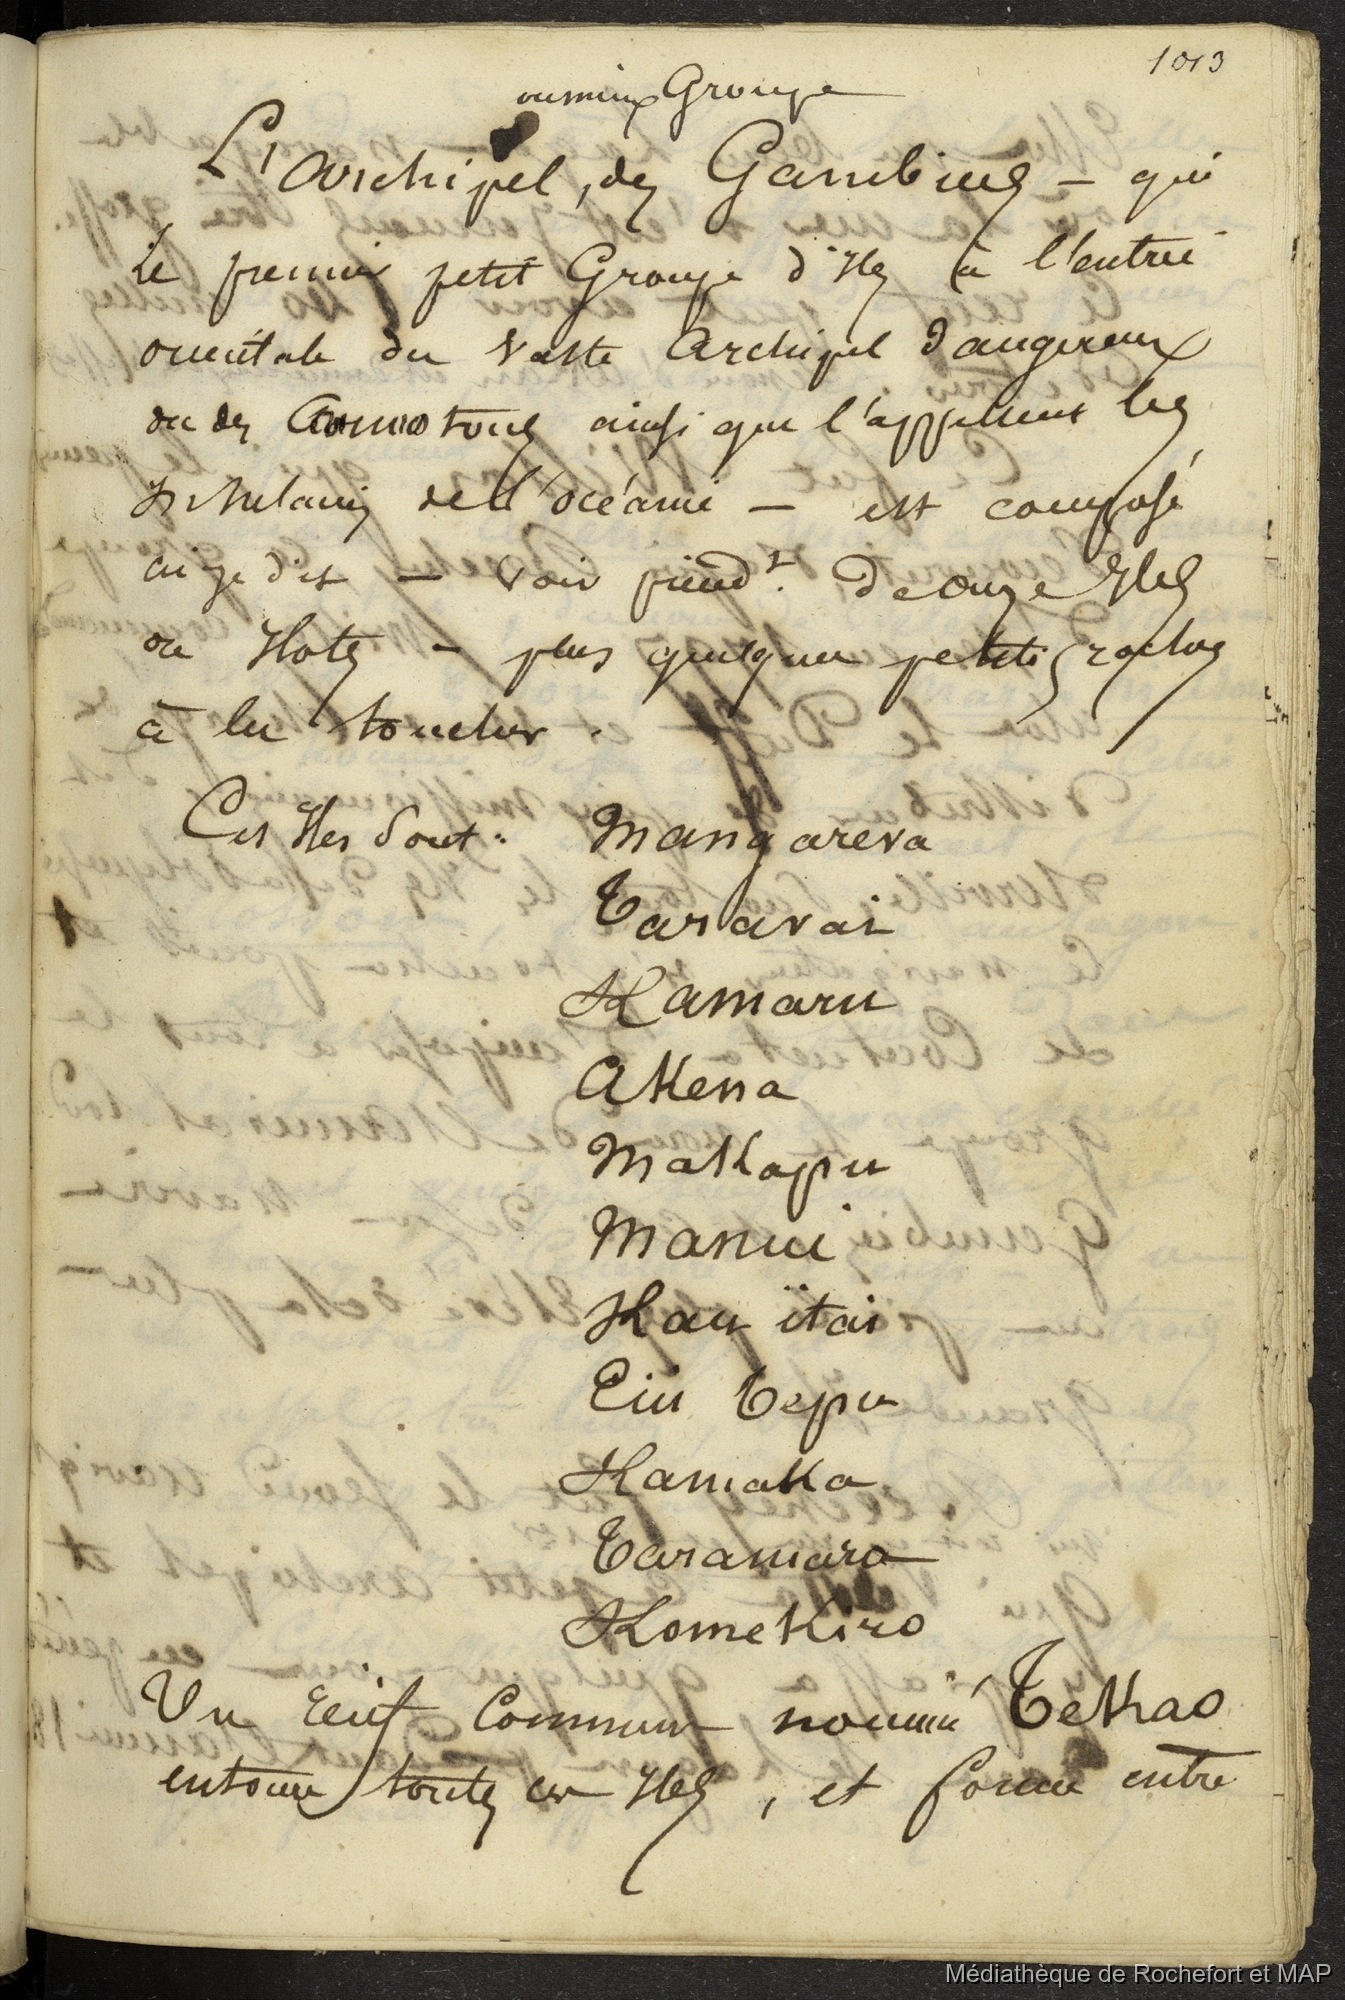 1013
ou mieux Groupe
L'Archipel, des Gambiers – qui
le premier petit Groupe d'Iles à l'entrée
orientale du vaste Archipel Dangereux
ou des ainsi que l'appellent les
de l'océanie – est composé
– voir De onze Iles
ou Ilots – plus quelques petits rochers
à les toucher.
Ces Iles sont : Mangareva
Taravai
Kamaru
AKena
MaKapu
Manui
Kau ïtai
Eiu Tepu
KamaKa
Taramaro
KomeKiro
Un récif Commun nommé TeKao
entoure toutes ces Iles, et forme entre
Médiathèque de Rochefort et MAP